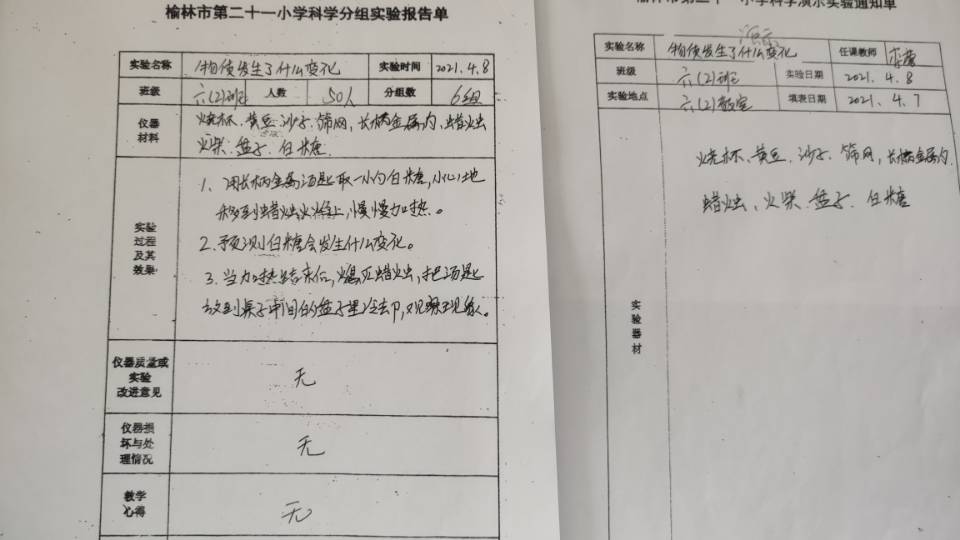 榆林市第二十一小学科学分组实验报告单
实验名称 物质发生了什么变化 实验时间 2021.4.8
班级 六(2)班 人数 50人 分组数 6组
仪器材料 烧杯、黄豆、沙子、筛网,长柄金属勺,蜡烛
火柴、盘子、白糖
实验过程及其效果
1、用长柄金属汤匙取一小勺白糖,小心地
移到蜡烛火焰上,慢慢加热。
2.预测白糖会发生什么变化。
3、当加热结束后,熄灭蜡烛,把汤匙
放到桌子中间的盘子里冷却,观察现象。
仪器质量或实验改进意见 无
仪器损坏与处理情况 无
教学心得 无
榆林市第二十一小学科学演示实验通知单
演示
实验名称 物质发生了什么变化 任课教师
班级 六(2)班 实验日期 2021.4.8
实验地点 六(2)教室 填表日期 2021.4.7
实验器材
烧杯、黄豆、沙子、筛网,长柄金属勺
蜡烛、火柴、盘子、白糖